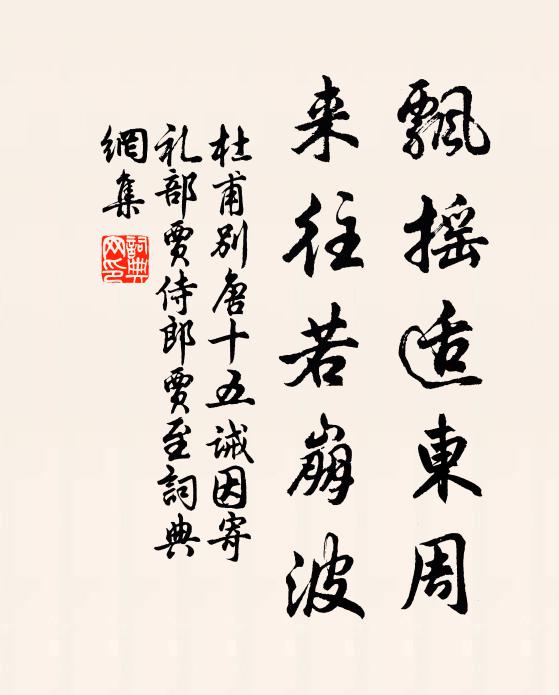 飄摇适東周
来往若崩波
杜甫別唐十五诫因寄
礼部賈侍郎賈至詞典
網集
詞典
网印